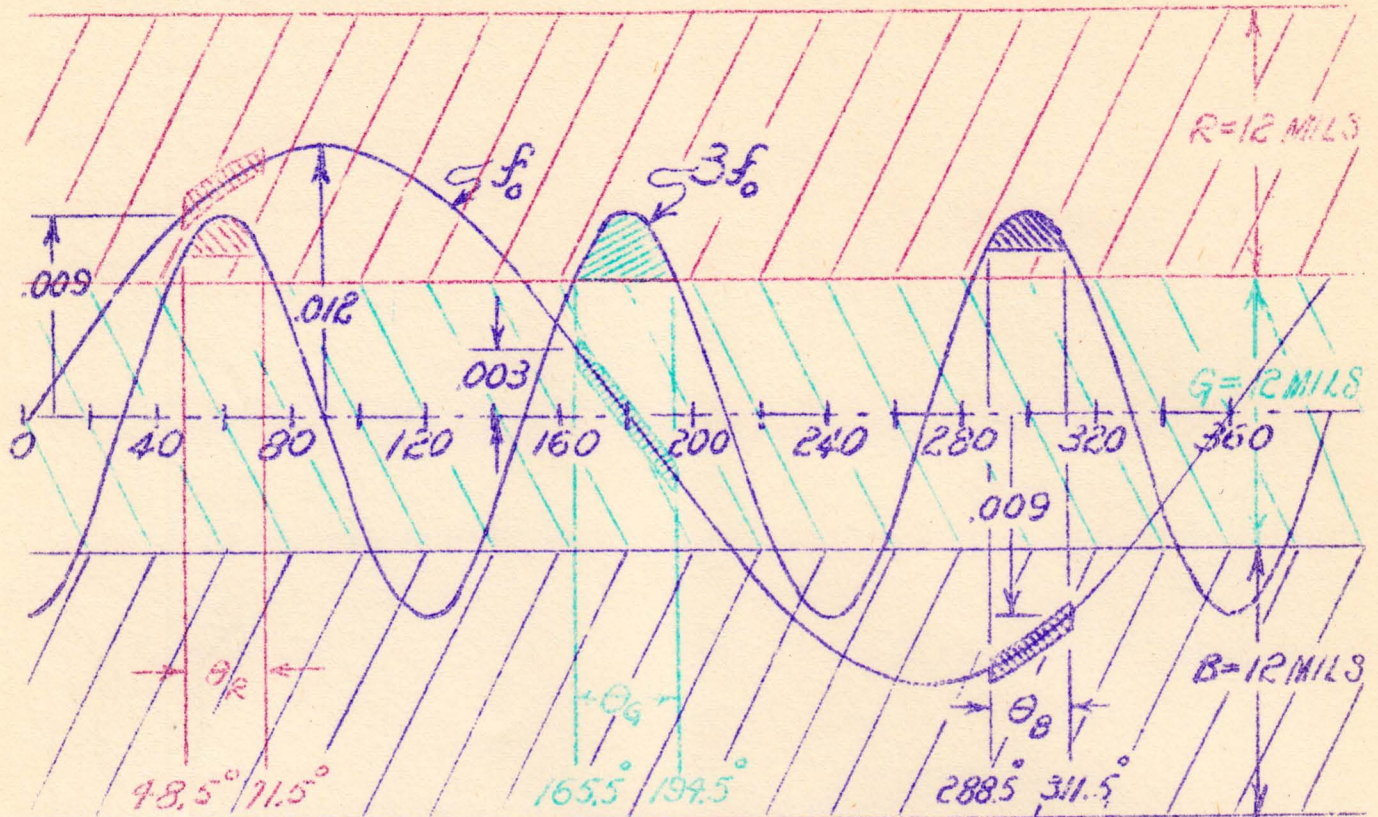 R=12 MILS
f₀
3f₀
.009
.012
.003
G=12 MILS
0 40 80 120 160 200 240 280 320 360
.009
θR
θG
θB
B=12 MILS
48.5° 71.5° 165.5° 194.5° 288.5° 311.5°